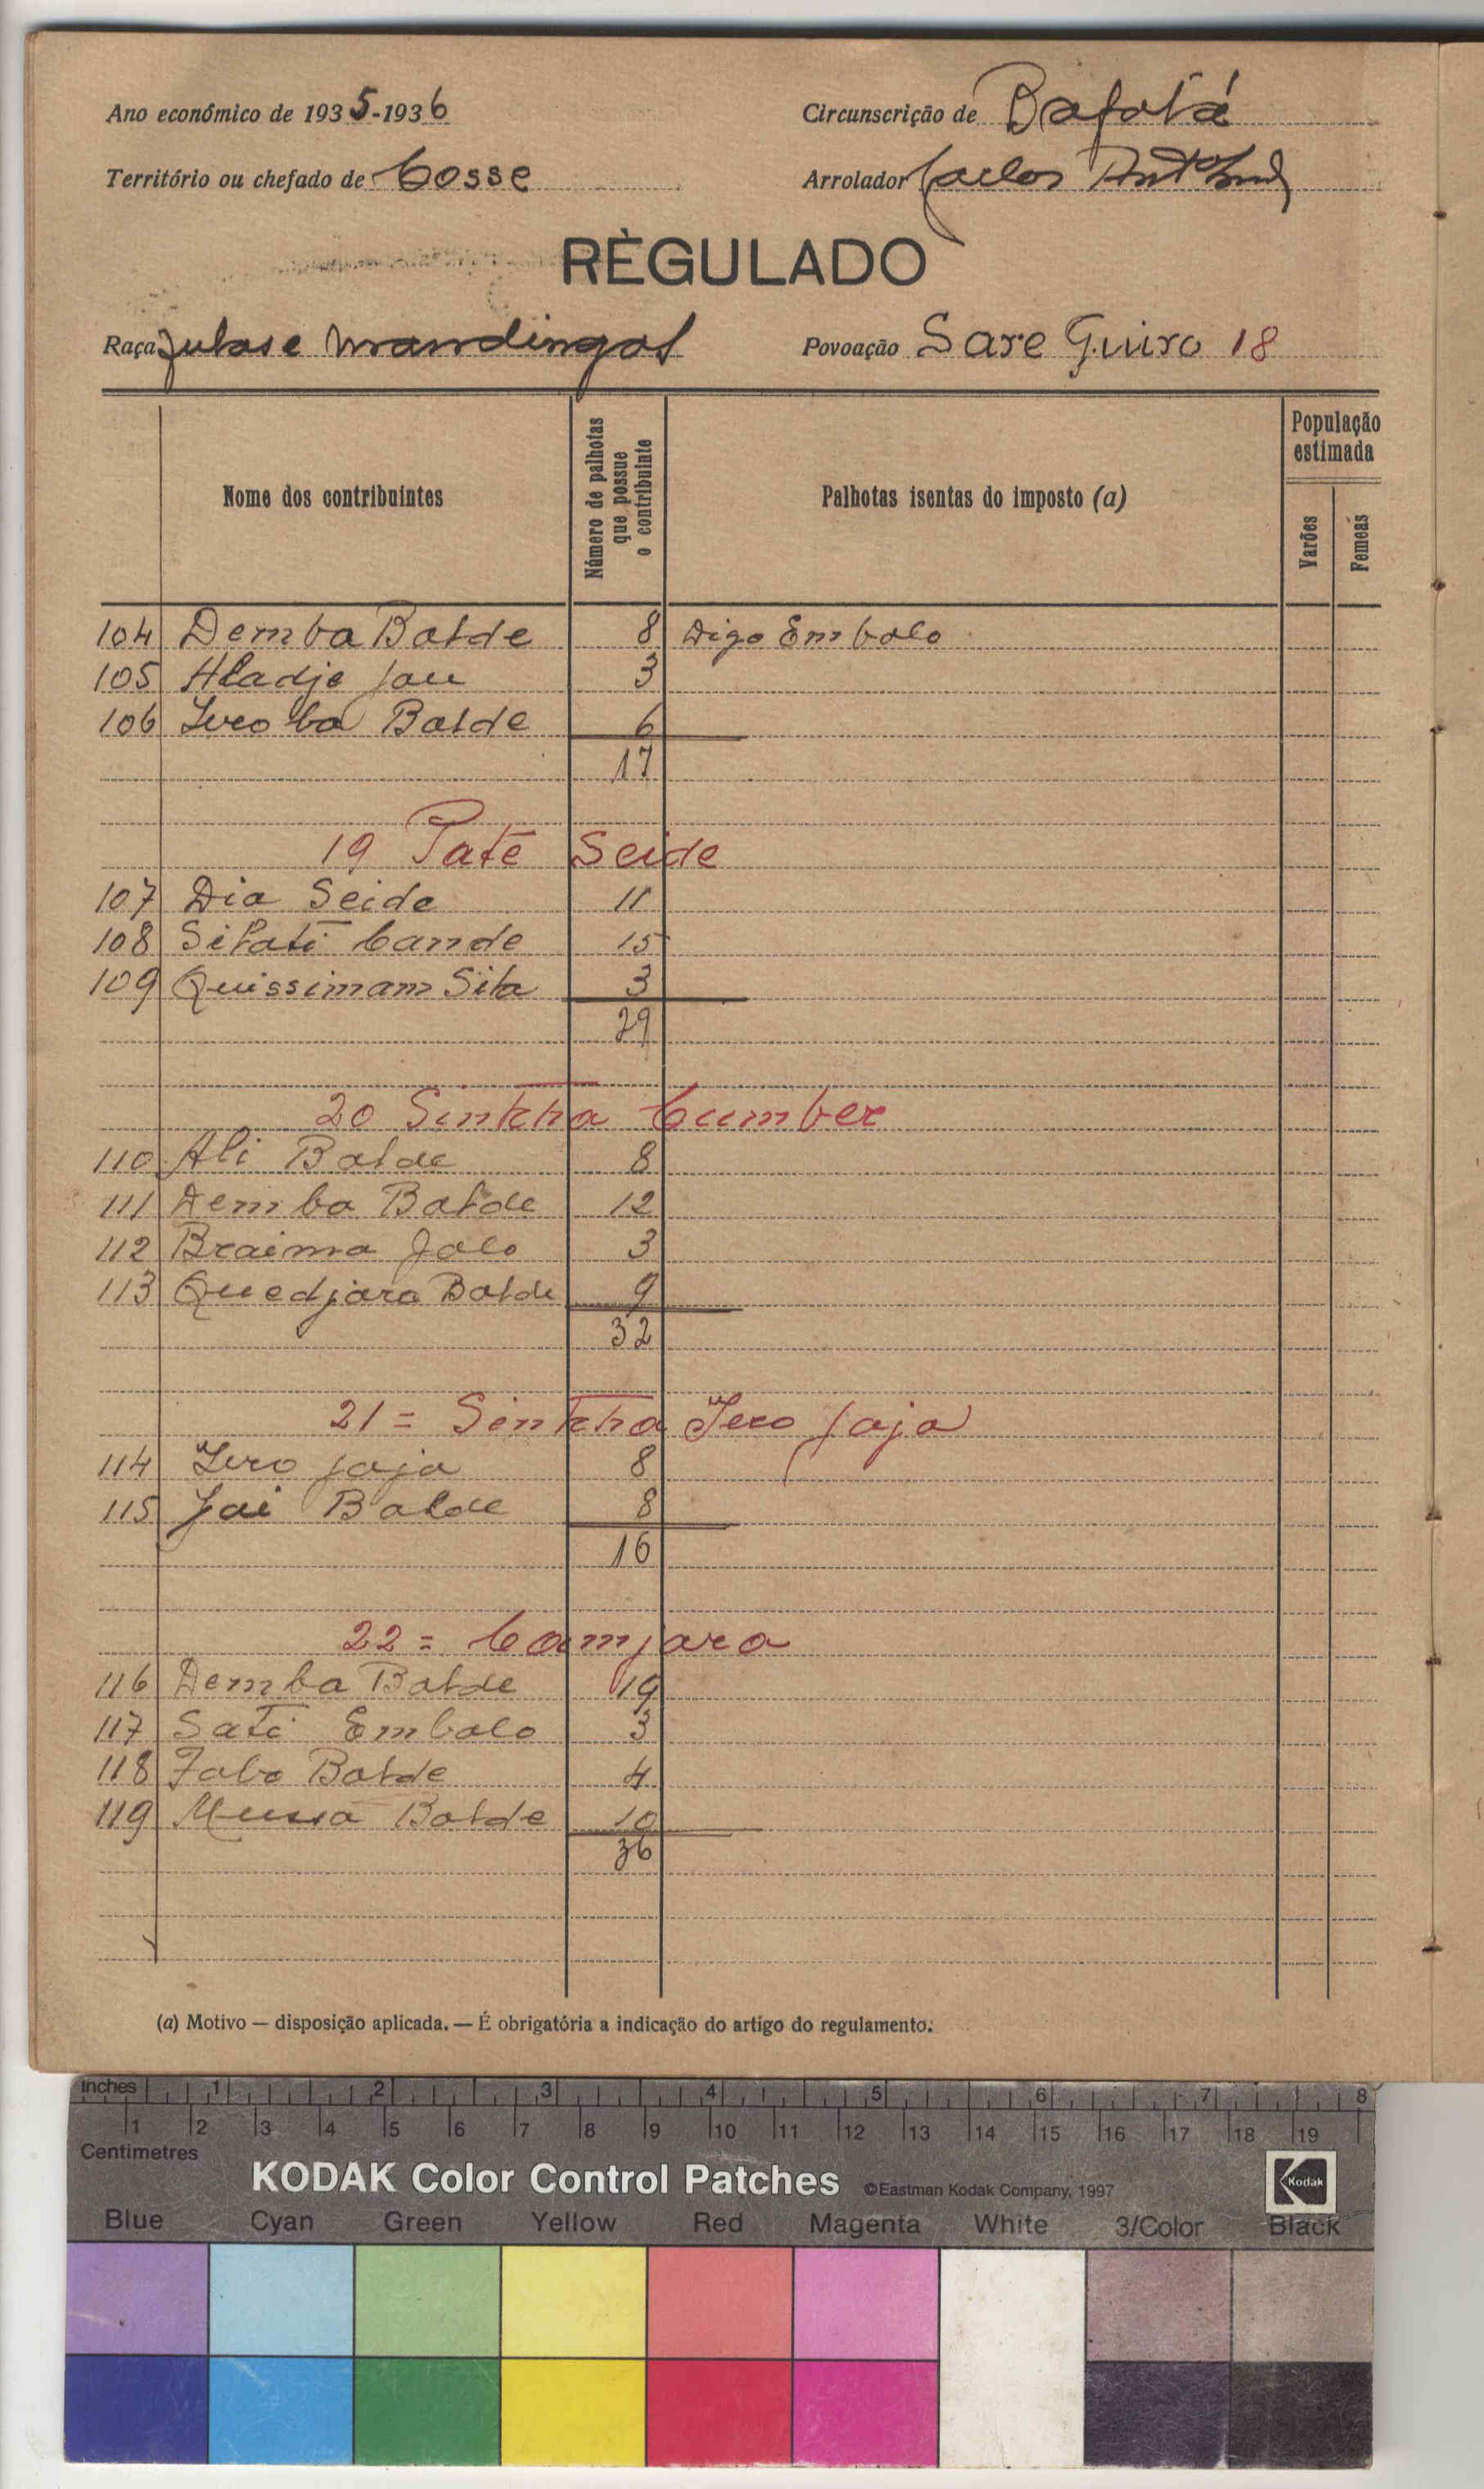 Ano económico de 1935-1936
Circunscrição de Bafatá
Território ou chefado de Cosse
Arrolador Carlos
RÈGULADO
Raça fulas e mandingas
Povoação Sare Guiro 18
Nome dos contribuintes
Número de palhotas
que possue
o contribuinte
Palhotas isentas do imposto (a)
População
estimada
Varões
Femeas
104 Demba Balde 8 Digo Embalo
105 Aladje Jau 3
106 Iero ba Balde 6
17
19 Paté Seide
107 Dia Seide 11
108 Silati Cande 15
109 Quissimam Sila 3
29
20 Sintcha Cumber
110 Ali Balde 8
111 Demba Balde 12
112 Braima Jalo 3
113 Quedjara Balde 9
32
21 = Sintcha Iero Jaja
114 Iero Jaja 8
115 Jai Balde 8
16
22 = Camjara
116 Demba Balde 19
117 Sati Embalo 3
118 Falo Balde 4
119 Mussa Balde 10
36
(a) Motivo — disposição aplicada. — É obrigatória a indicação do artigo do regulamento.
Inches 1 2 3 4 5 6 7 8
1 2 3 4 5 6 7 8 9 10 11 12 13 14 15 16 17 18 19
Centimetres
KODAK Color Control Patches ©Eastman Kodak Company, 1997
Kodak
Blue Cyan Green Yellow Red Magenta White 3/Color Black